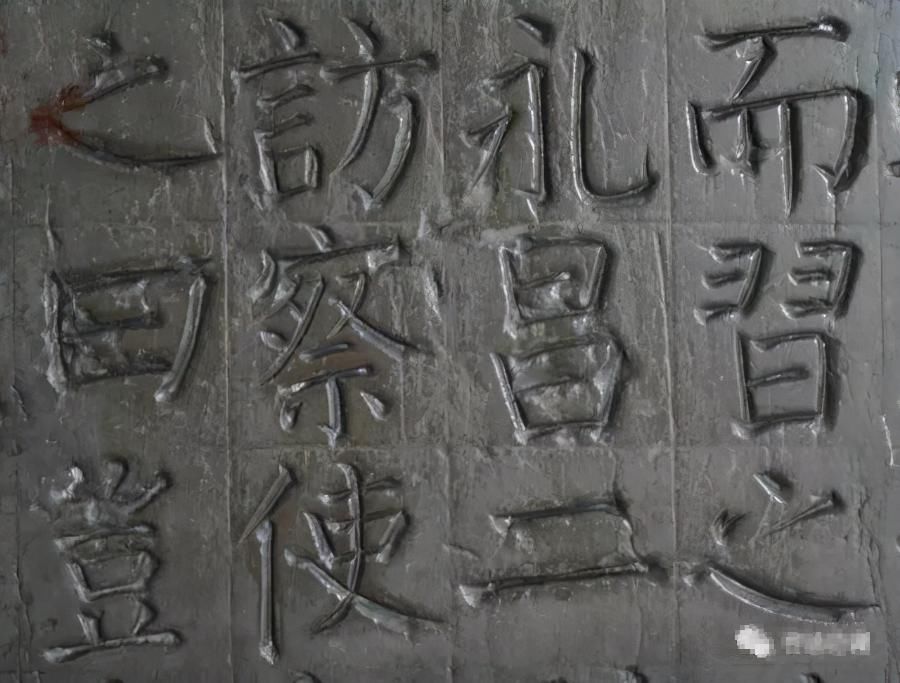 而習之
礼昌二
訪察使
之曰豈